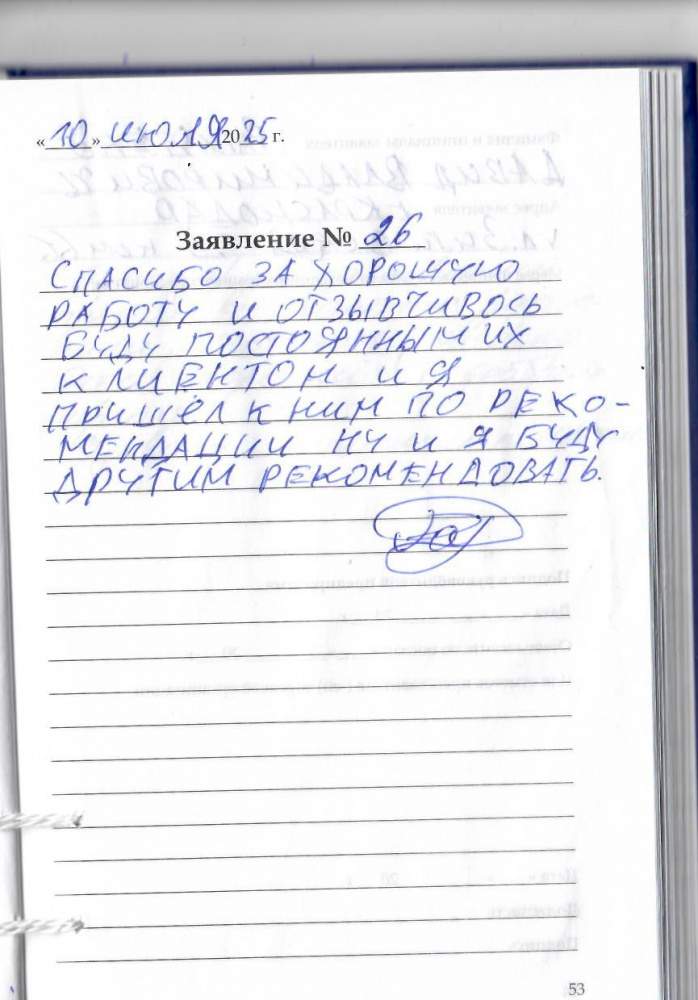 «10» июля 2025 г.
Заявление № 26
СПАСИБО ЗА ХОРОШУЮ
РАБОТУ И ОТЗЫВЧИВОСЬ
БУДУ ПОСТОЯННЫМ ИХ
КЛИЕНТОМ И Я
ПРИШЁЛ К НИМ ПО РЕКО-
МЕНДАЦИИ НУ И Я БУДУ
ДРУГИМ РЕКОМЕНДОВАТЬ.
53